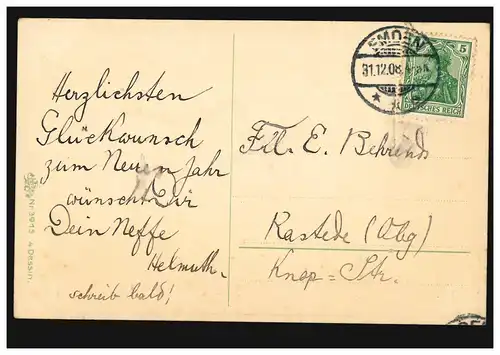 Herzlichsten
Glückwunsch
zum Neuen Jahr
wünscht Dir
Dein Neffe
Helmuth.
schreib bald!
EMDEN
31.12.08.
5
DEUTSCHES REICH
Frl. E. Behrends
Rastede (Obg)
Knop=Str.
Nr. 3915 4 Dessin.